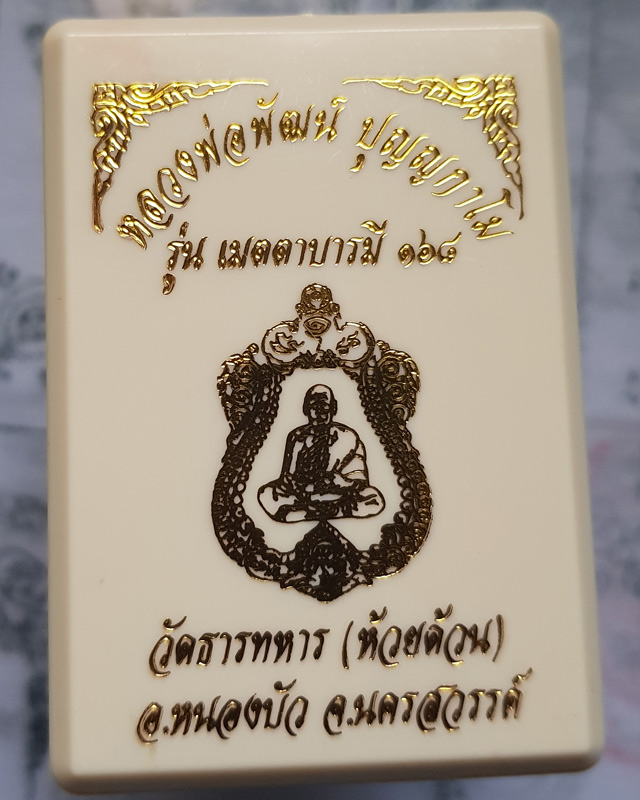 หลวงพ่อพัฒน์ ปุญญกาโม
รุ่น เมตตาบารมี ๑๖๘
วัดธารทหาร (ห้วยด้วน)
อ.หนองบัว จ.นครสวรรค์